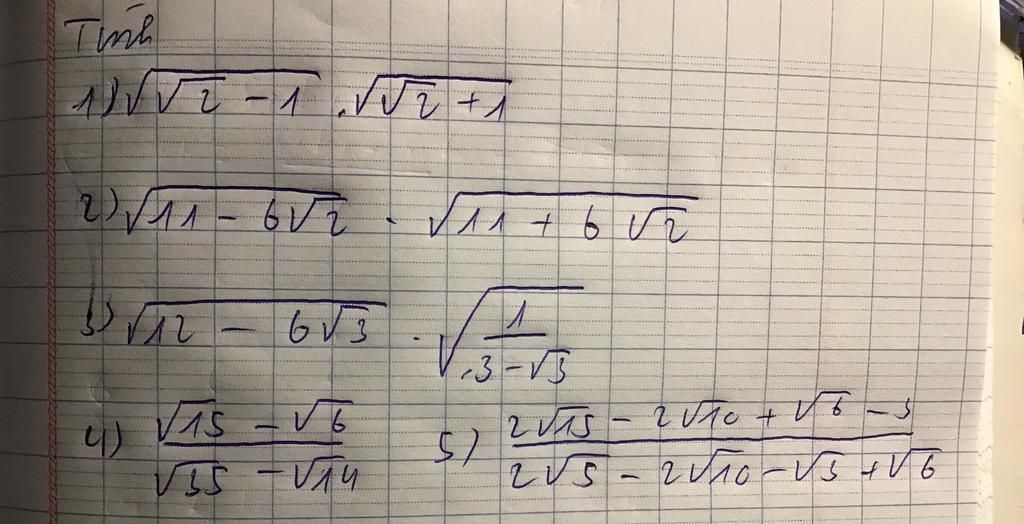 Tính
1) √(√2 − 1) . √(√2 + 1)
2) √(11 − 6√2) · √(11 + 6√2)
3) √(12 − 6√3) · √(1/(3 − √3))
4) (√15 − √6)/(√35 − √14) 5) (2√15 − 2√10 + √6 − 3)/(2√5 − 2√10 − √3 + √6)